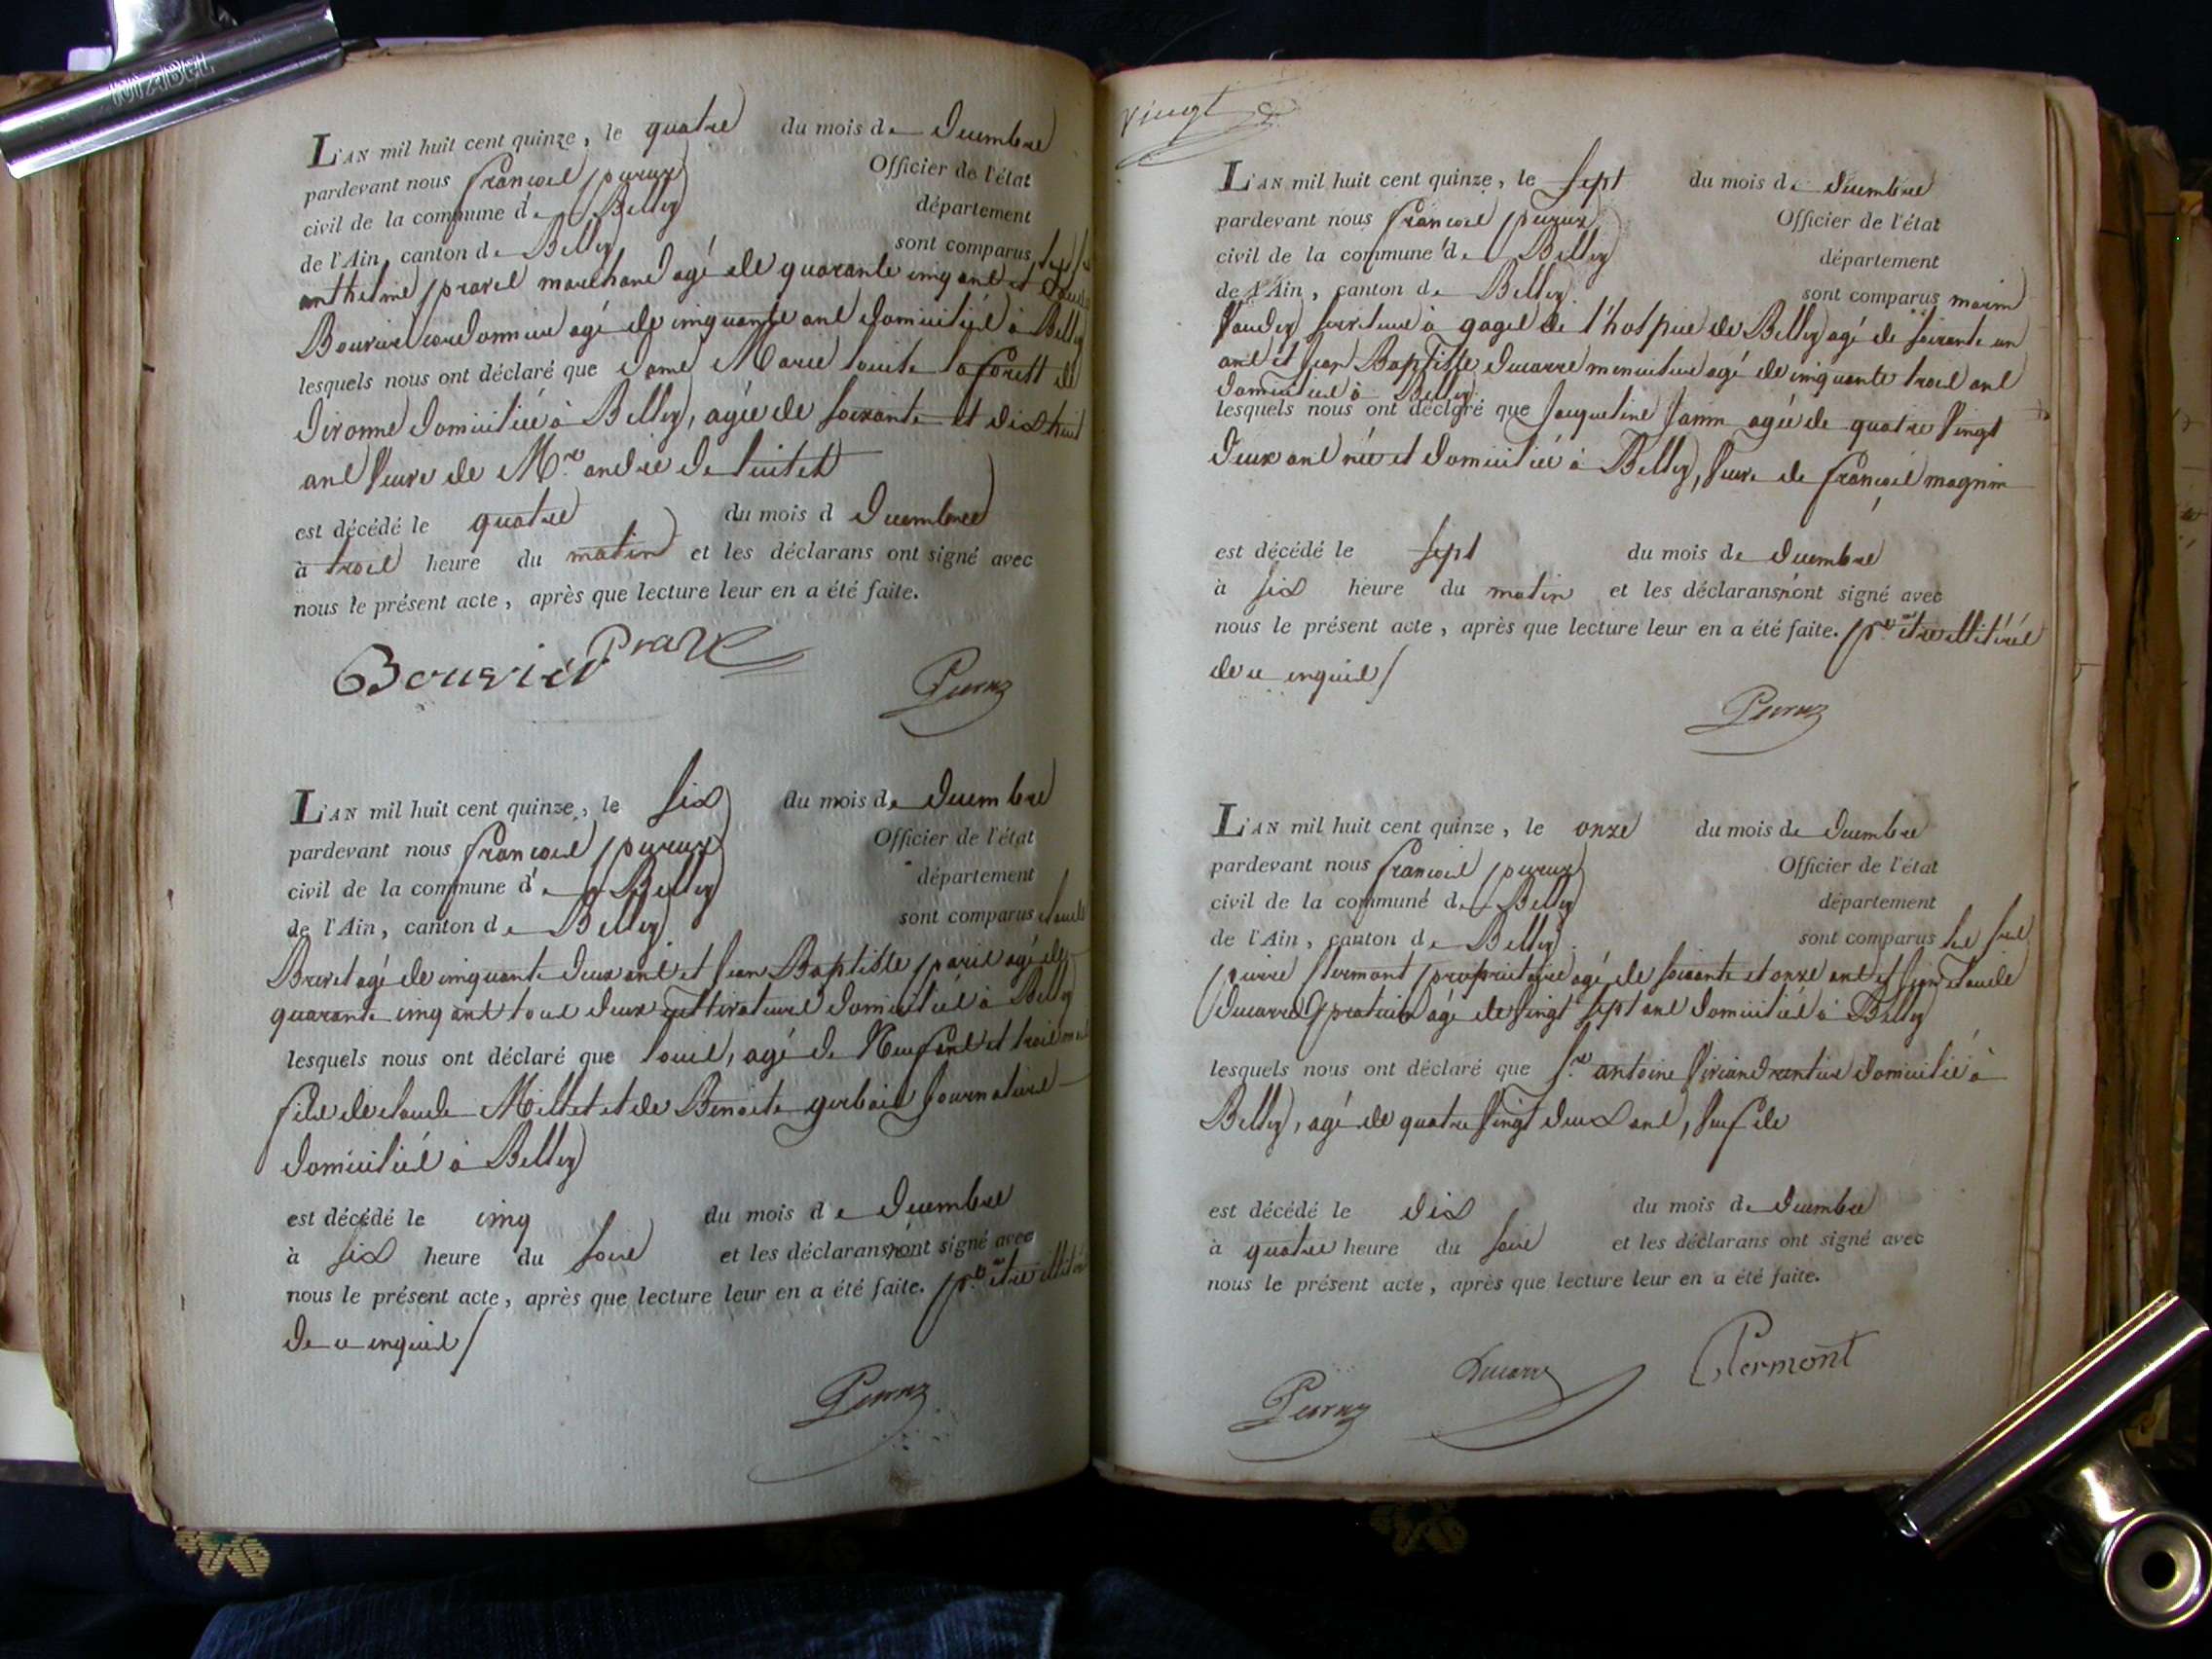 L'AN mil huit cent quinze, le quatre du mois de Decembre
pardevant nous francois peruz Officier de l'état
civil de la commune de Belley département
de l'Ain, canton de Belley sont comparus
anthelme pravel marchand agé de quarante cinq ans et
Bouvier cordonnier agé de cinquante ans domiciliés à Belley
lesquels nous ont déclaré que dame Marie louise laforest de
Divonne domiciliée à Belley, agée de soixante et dix huit
ans veuve de Mr. andré de
est décédé le quatre du mois d Decembre
à trois heure du matin et les déclarans ont signé avec
nous le présent acte, après que lecture leur en a été faite.
Bouvier
L'AN mil huit cent quinze, le six du mois de Decembre
pardevant nous francois peruz Officier de l'état
civil de la commune de Belley département
de l'Ain, canton de Belley sont comparus claude
Brevet agé de cinquante deux ans et jean Baptiste paris agé de
quarante cinq ans tous deux cultivateurs domiciliés à Belley
lesquels nous ont déclaré que louis, agé de Neuf ans et trois mois
fils de claude Millet et de Benoite gerbais journaliers
domiciliés à Belley
est décédé le cinq du mois de Decembre
à six heure du soir et les déclarans n'ont signé avec
nous le présent acte, après que lecture leur en a été faite. pr. etre
de ce enquis /
vingt
L'AN mil huit cent quinze, le sept du mois de Decembre
pardevant nous francois peruz Officier de l'état
civil de la commune de Belley département
de l'Ain, canton de Belley sont comparus marin
serviteur à gages de l'hospice de Belley agé de soixante un
ans et jean Baptiste Ducarre menuisier agé de cinquante trois ans
domiciliés à Belley
lesquels nous ont déclaré que jacqueline agée de quatre vingt
deux ans née et domiciliée à Belley, veuve de francois magnin
est décédé le sept du mois de Decembre
à six heure du matin et les déclarans n'ont signé avec
nous le présent acte, après que lecture leur en a été faite. pr. etre illitérés
de ce enquis /
L'AN mil huit cent quinze, le onze du mois de Decembre
pardevant nous francois peruz Officier de l'état
civil de la commune de Belley département
de l'Ain, canton de Belley sont comparus
pierre Clermont propriétaire agé de soixante et onze ans et jean claude
Ducarre praticien agé de vingt sept ans domiciliés à Belley
lesquels nous ont déclaré que Sr. antoine rentier domicilié à
Belley, agé de quatre vingt deux ans,
est décédé le dix du mois de Decembre
à quatre heure du soir et les déclarans ont signé avec
nous le présent acte, après que lecture leur en a été faite.
Ducarre Clermont